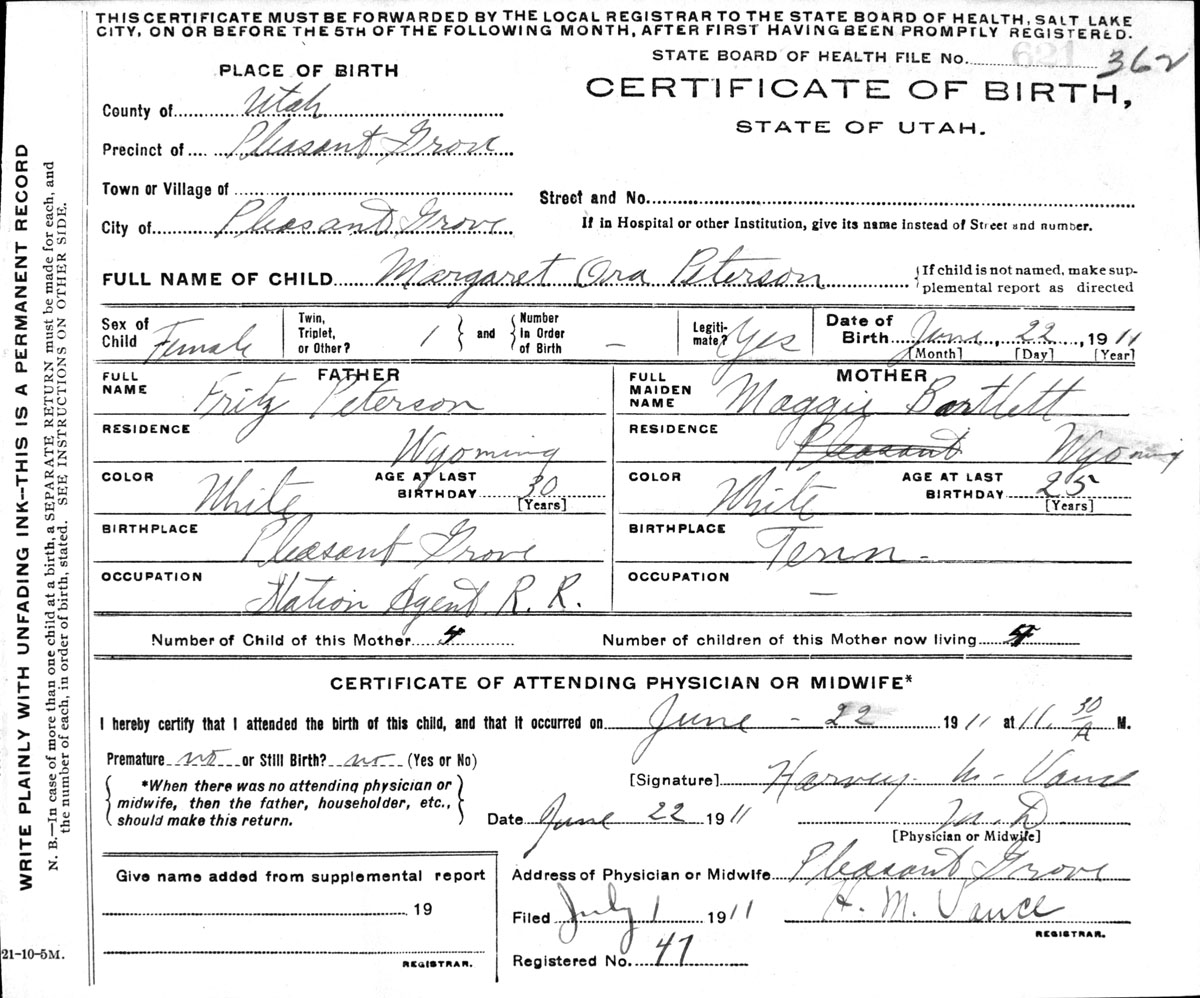 THIS CERTIFICATE MUST BE FORWARDED BY THE LOCAL REGISTRAR TO THE STATE BOARD OF HEALTH, SALT LAKE
CITY, ON OR BEFORE THE 5TH OF THE FOLLOWING MONTH, AFTER FIRST HAVING BEEN PROMPTLY REGISTERED.
STATE BOARD OF HEALTH FILE No. 621 362
PLACE OF BIRTH
CERTIFICATE OF BIRTH,
STATE OF UTAH.
County of Utah
Precinct of Pleasant Grove
Town or Village of
Street and No.
City of Pleasant Grove
If in Hospital or other Institution, give its name instead of Street and number.
FULL NAME OF CHILD Margaret Ora Peterson
If child is not named, make sup-
plemental report as directed
Sex of Child Female
Twin, Triplet, or Other? 1 and Number In Order of Birth –
Legiti-mate? Yes
Date of Birth June 22, 1911
[Month] [Day] [Year]
FATHER
FULL NAME Fritz Peterson
RESIDENCE Wyoming
COLOR White AGE AT LAST BIRTHDAY 30
[Years]
BIRTHPLACE Pleasant Grove
OCCUPATION Station Agent R. R.
MOTHER
FULL MAIDEN NAME Maggie Bartlett
RESIDENCE Pleasant Wyoming
COLOR White AGE AT LAST BIRTHDAY 25
[Years]
BIRTHPLACE Tenn –
OCCUPATION –
Number of Child of this Mother 4 Number of children of this Mother now living 4
CERTIFICATE OF ATTENDING PHYSICIAN OR MIDWIFE*
I hereby certify that I attended the birth of this child, and that it occurred on June - 22 1911 at 11. 30/A M.
Premature no or Still Birth? no (Yes or No)
*When there was no attending physician or
midwife, then the father, householder, etc.,
should make this return.
[Signature] Harvey M. Vance
Date June 22 1911 M. D
[Physician or Midwife]
Give name added from supplemental report
19
REGISTRAR.
Address of Physician or Midwife Pleasant Grove
Filed July 1 1911 H. M. Vance
REGISTRAR.
Registered No. 47
WRITE PLAINLY WITH UNFADING INK—THIS IS A PERMANENT RECORD
N. B.—In case of more than one child at a birth, a SEPARATE RETURN must be made for each, and
the number of each, in order of birth, stated. SEE INSTRUCTIONS ON OTHER SIDE.
21-10-5M.